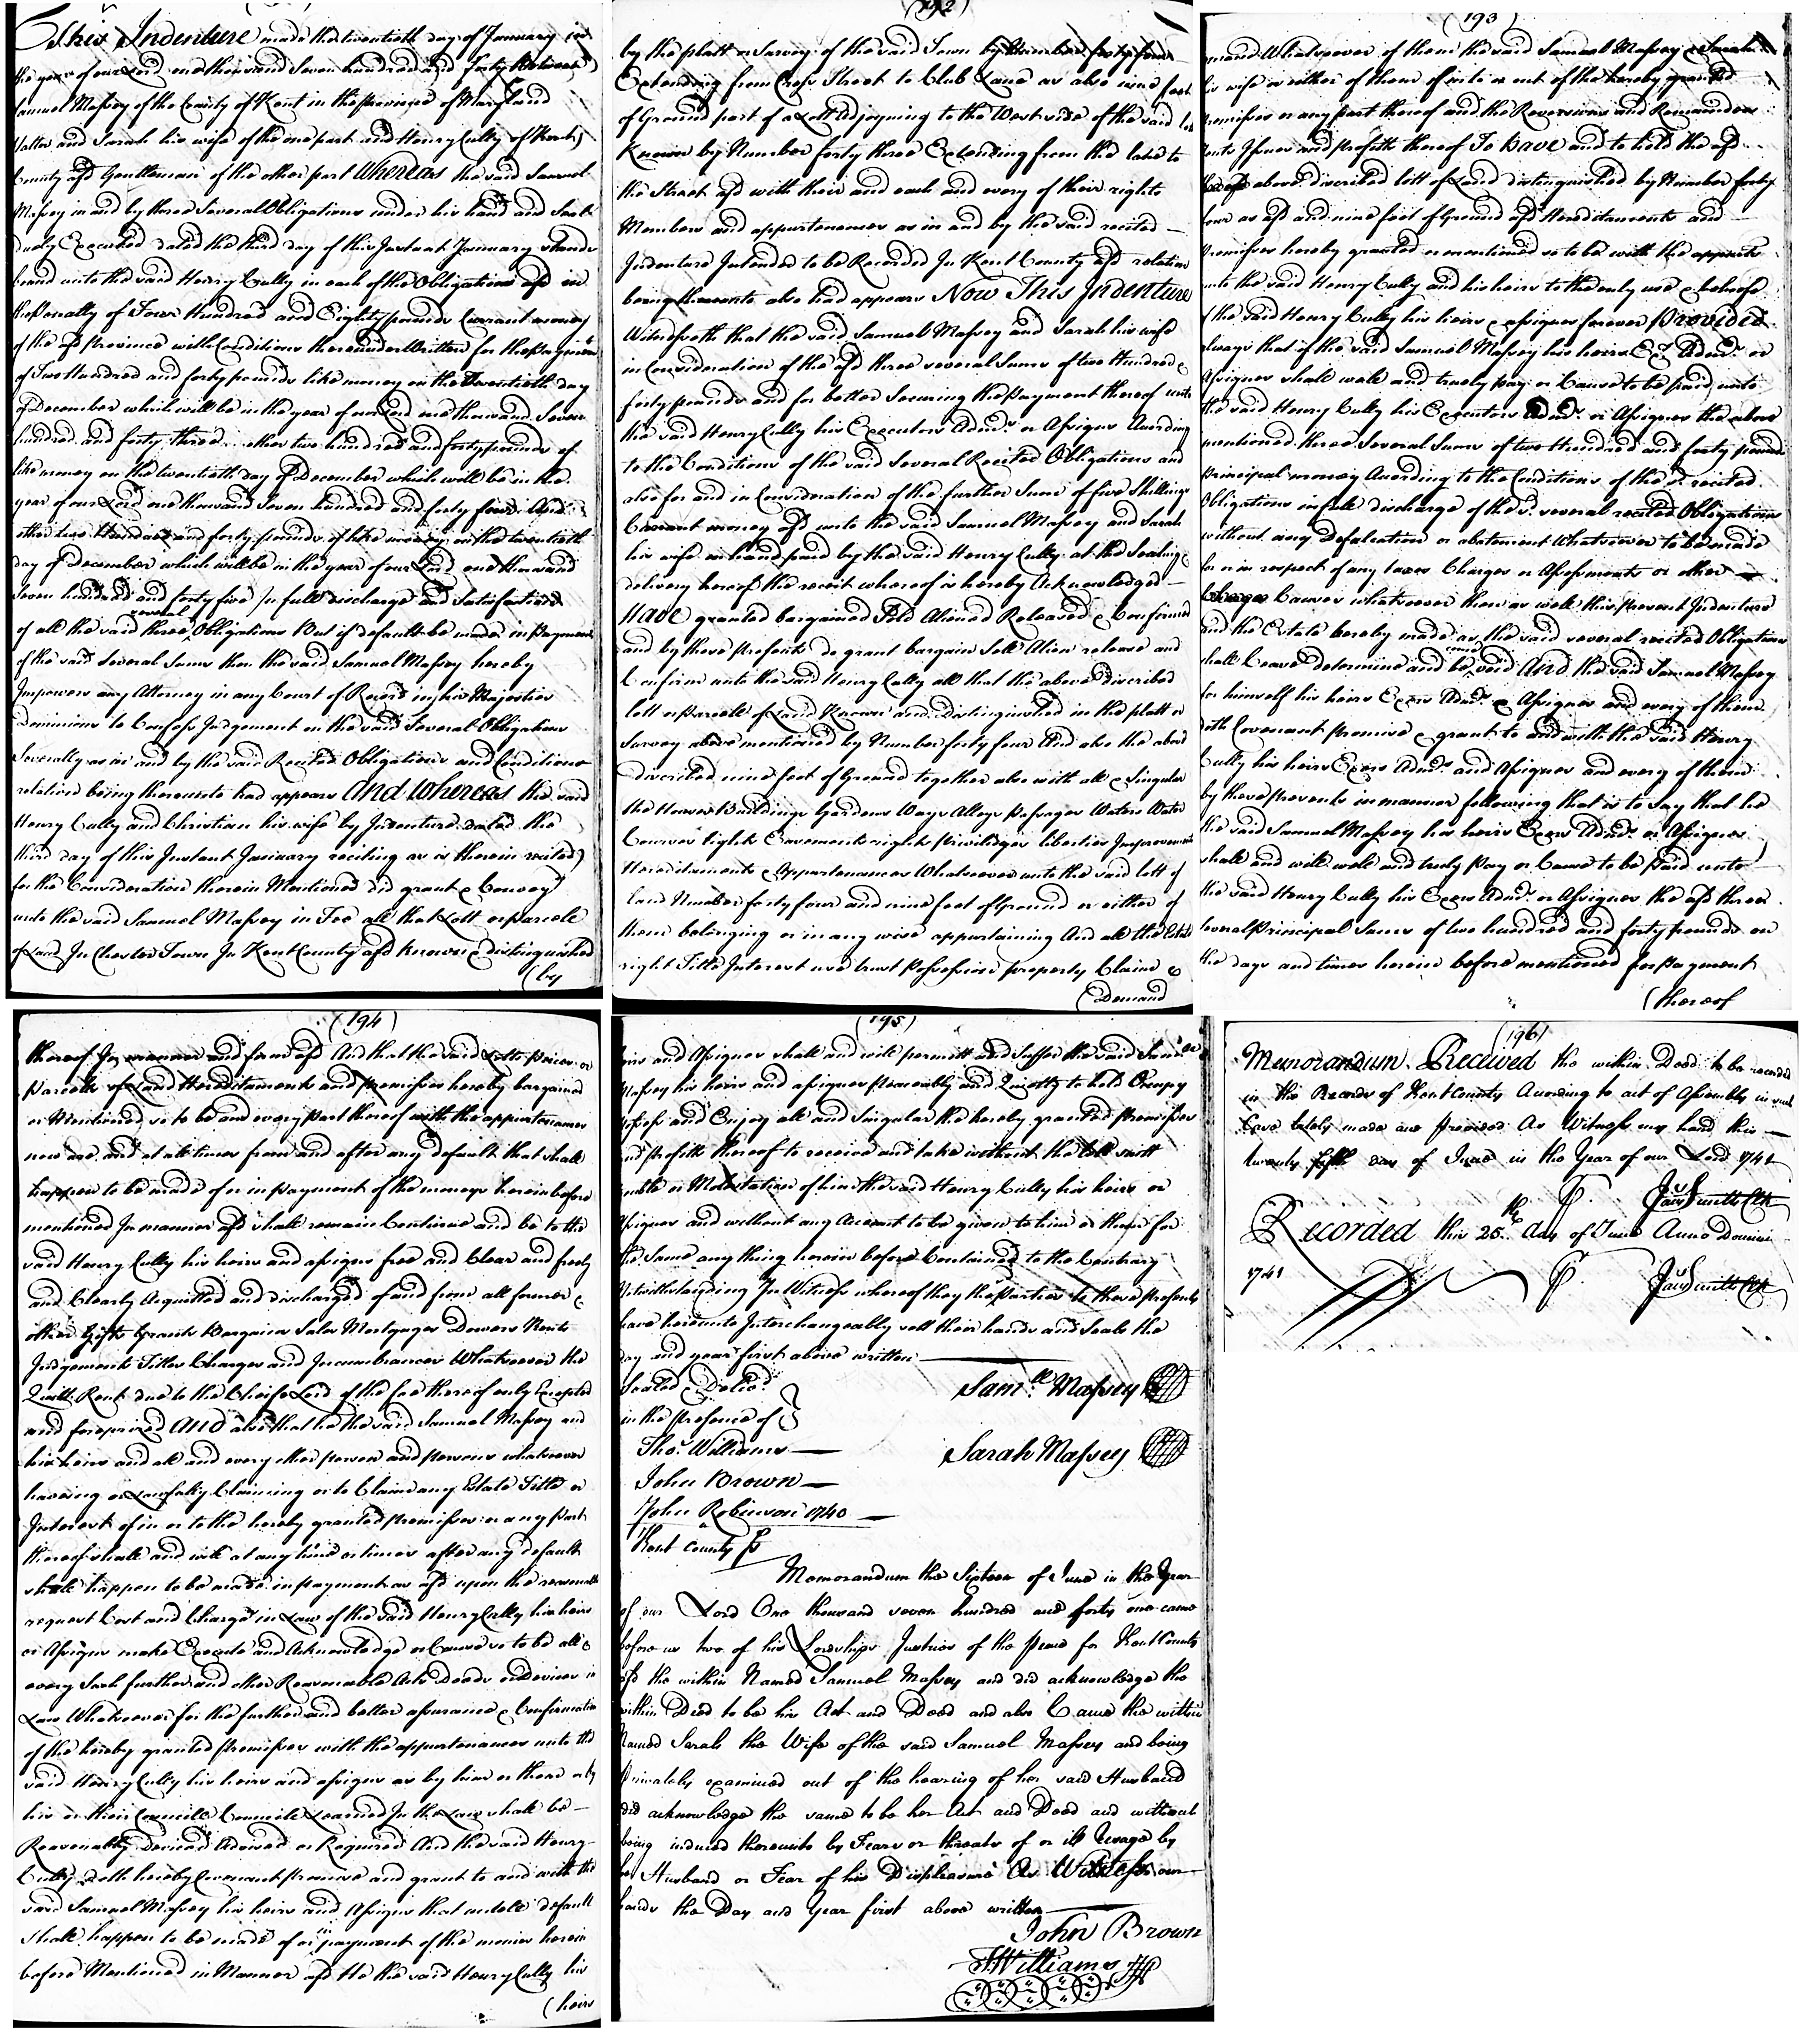 This Indenture made the twentieth day of January in
the year of our Lord one thousand Seven hundred and forty Between
Samuel Massey of the County of Kent in the province of Maryland
and Sarah his wife of the one part and Henry Cully of Kent
County afd Gentleman of the other part Whereas the said Samuel
Massey in and by three Several Obligations under his hand and Seal
duely Executed dated the third day of this Instant January stands
bound unto the said Henry Cully in each of the Obligations afd in
the penally of Four Hundred and Eighty pounds Currant money
of the afd province with Conditions thereunder Written for the payment
of Two Hundred and forty pounds like money on the Twentieth day
of December which will be in the year of our Lord one thousand Seven
hundred and forty three other two hundred and forty pounds of
like money on the twentieth day of December which will be in the
year of our Lord one thousand Seven hundred and forty four And
other two Hundred and forty pounds of like money on the twentieth
day of December which will be in the year of our Lord one thousand
Seven hundred and forty five In full discharge and Satisfaction
of all the said three several Obligations But if default be made in payment
of the said Several Sums then the said Samuel Massey hereby
Impowers any Attorney in any Court of Record in his Majesties
dominions to Confess Judgement on the said Several Obligations
Severally as in and by the said Recited Obligations and Conditions
relation being thereunto had appears And Whereas the said
Henry Cully and Christian his wife by Indenture dated the
third day of this Instant January reciting as is therein recited
for the Consideration therein Mentioned did grant & Convey
unto the said Samuel Massey in Fee all that Lott or parcele
of Land In Chester Town In Kent County afd known & distinguished
(by
(192)
by the platt or Survey of the said Town by Number forty four
Extending from Cross Street to Club Lane as also nine foot
of Ground part of a Lott adjoyning to the West side of the said lot
Known by Number forty three Extending from the lane to
the Street afd with their and each and every of their rights
Members and appurtenances as in and by the said recited
Indenture Intended to be Recorded In Kent County afd relation
being thereunto also had appears Now This Indenture
Witnesseth that the said Samuel Massey and Sarah his wife
in Consideration of the afd three several Sums of two Hundred &
forty pounds and for better Securing the payment thereof unto
the said Henry Cully his Executors Admrs or Assigns According
to the Conditions of the said Several Recited Obligations and
also for and in Consideration of the further Sum of five Shillings
Currant money afd unto the said Samuel Massey and Sarah
his wife in hand paid by the said Henry Cully at the Sealing &
delivery hereof the receit whereof is hereby Acknowledged
Have granted bargained Sold Aliened Released & Confirmed
and by these presents do grant bargain Sell Alien release and
Confirm unto the said Henry Cully all that the above discribed
lott or parcele of Land Known and Distinguished in the platt or
Survey above mentioned by Number forty four And also the above
discribed nine foot of Ground together also with all & Singular
the Houses Buildings Gardens Ways Alleys passages Waters Water
Courses lights Easements rights priviledges liberties Improvements
Hereditaments & Appurtenances Whatsoever unto the said lott of
land Number forty four and nine foot of Ground or either of
them belonging or in any wise appertaining And all the Estate
right Title Interest use trust possession property Claime &
(Demand
(193)
mand Whatsoever of them the said Samuel Massey & Sarah
his wife or either of them of into or out of the hereby granted
premisses or any part thereof and the Reversions and Remainders
rents Issues and profitts thereof To Have and to hold the afd
above discribed lott of Land distinguished by Number forty
four as afd and nine foot of Ground afd Hereditaments and
premisses hereby granted or mentioned so to be with the appurts
unto the said Henry Cully and his heirs to the only use & behoofe
of the said Henry Cully his heirs & assignes forever Provided
always that if the said Samuel Massey his heirs Exrs Admrs or
Assignes shall well and truely pay or Cause to be paid unto
the said Henry Cully his Executors Admrs or Assignes the above
mentioned three Several Sums of two Hundred and forty pounds
principal money According to the Conditions of the sd recited
Obligations in full discharge of the sd several recited Obligations
without any Defalcation or abatement Whatsoever to be made
for or in respect of any taxes Charges or Assessments or other
Causes whatsoever then as well this present Indenture
and the Estate hereby made as the said several recited Obligations
shall Cease determine and be void And the said Samuel Massey
for himself his heirs Exers Admrs & Assignes and every of them
doth Covenant promise & grant to and with the said Henry
Cully his heirs Exers Admrs and Assignes and every of them
by these presents in manner following that is to say that he
the said Samuel Massey his heirs Exers Admrs or Assignes
shall and will well and truly pay or Cause to be paid unto
the said Henry Cully his Exers Admrs or Assignes the afd three
several principal Sums of two hundred and forty pounds on
the days and times herein before mentioned for payment
(thereof
(194)
thereof In manner and form afd And that the said Lotts pieces or
parcells of Land Hereditaments and premisses hereby bargained
or Mentioned so to be and every part thereof with the appurtenances
now are and at all times from and after any default that shall
happen to be made of or in payment of the moneys herein before
mentioned In manner afd shall remain Continue and be to the
said Henry Cully his heirs and assignes free and Clear and freely
and Clearly Acquitted and discharged of and from all former &
other Gifts Grants Bargains Sales Mortgages Dowers Rents
Judgements Titles Charges and Incumbrances Whatsoever the
Quitt Rent due to the Cheife Lord of the fee thereof only Excepted
and foreprized And also that he the said Samuel Massey and
his heirs and all and every other person and persons whatsoever
haveing or Lawfully Claiming or to Claim any Estate Title or
Interest of in or to the hereby granted premisses or any part
thereof shall and will at any time or times after any default
shall happen to be made in payment as afd upon the reasonable
request Cost and Charge in Law of the said Henry Cully his heirs
or Assigns make Execute and Acknowledge or Cause so to be all &
every Such further and other Reasonable Acts Deeds or Devices in
Law Whatsoever for the further and better assurance & Confirmation
of the hereby granted premisses with the appurtenances unto the
said Henry Cully his heirs and assigns as by him or them or by
his or their Councile Learned In the Law shall be
Reasonably Devised Advised or Required And the said Henry
Cully Doth hereby Covenant promise and grant to and with the
said Samuel Massey his heirs and Assigns that untill default
shall happen to be made of or in payment of the monies herein
before Mentioned in Manner afd He the said Henry Cully his
(heirs
(195)
heirs and Assignes shall and will permitt and Suffer the said Samuel
Massey his heirs and assignes peaceably and Quietly to hold Occupy
possess and Enjoy all and Singular the hereby granted premisses
and profitts thereof to receive and take without the lett suitt
trouble or Molestation of him the said Henry Cully his heirs or
Assignes and without any Account to be given to him or them for
the Same any thing herein before Contained to the Contrary
Notwithstanding In Witness whereof they the parties to these presents
have hereunto Interchangeably sett their hands and Seals the
day and year first above written
Sealed & Delivd
in the presence of
Samll Massey
Thos Williams
Sarah Massey
John Brown
John Robinson 1740
Kent County ss
Memorandum the Sixteen of June in the Year
of our Lord One thousand seven hundred and forty one came
before us two of his Lordships Justices of the peace for Kent County
afd the within Named Samuel Massey and did acknowledge the
within Deed to be his Act and Deed and also Came the within
Named Sarah the Wife of the said Samuel Massey and being
privately examined out of the hearing of her said Husband
did acknowledge the same to be her Act and Deed and without
being induced thereunto by Fears or threats of or ill Usage by
her Husband or Fear of his Displeasure As Witness our
hands the Day and Year first above written
John Brown
T Williams
(196)
Memorandum Received the within Deed to be recorded
in the Records of Kent County According to act of Assembly in such
Case lately made and provided As Witness my hand this
twenty fifth day of June in the Year of our Lord 1741
P Jas Smith Clk
Recorded this 25th day of June Anno Domini
1741 P Jas Smith Clk